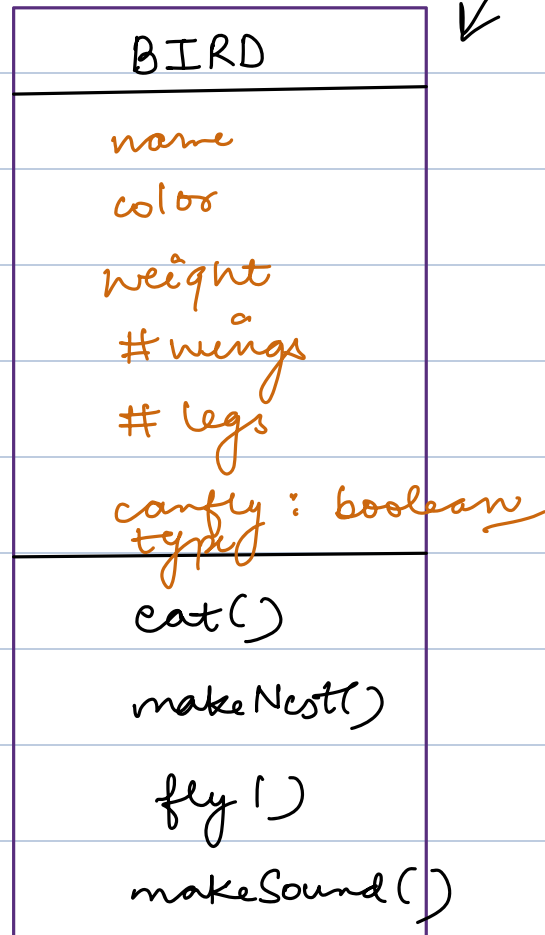 BIRD
name
color
weight
# wings
# legs
canfly : boolean
type
eat()
makeNest()
fly()
makeSound()